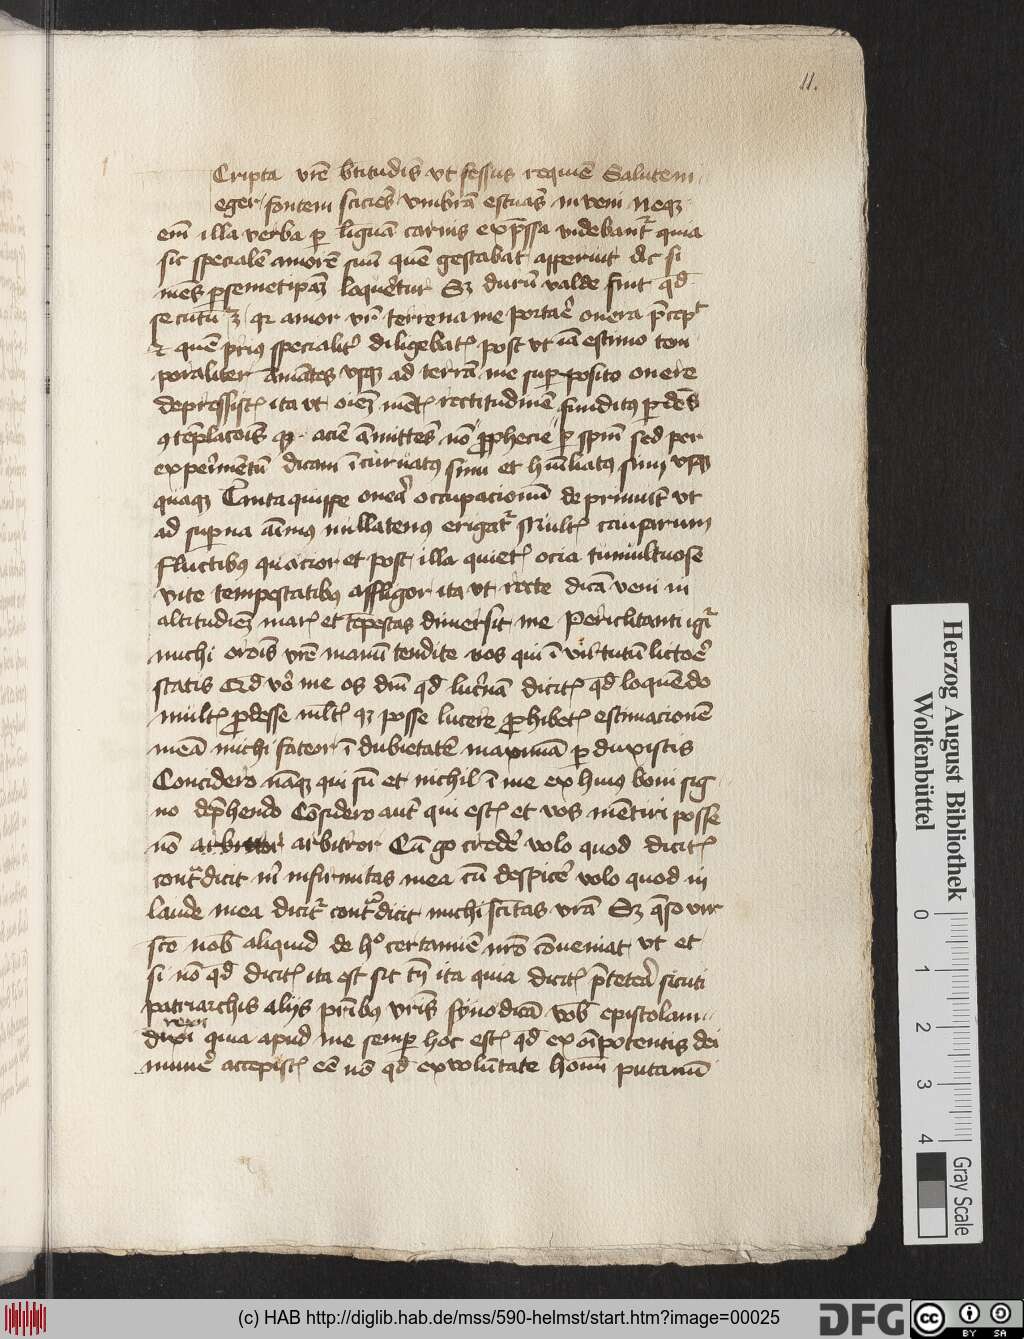 11.
Cripta vrē btitudīs vt fessus requiē Salutem
eger fontem sciciēs vmbrā estuās inveni Neqꝫ
em̄ illa verba ꝑ linguā carnis exp̄ssa videbant᷑ quia
sic specialē amorē suū quē gestabat apperuit Ac si
mēs ꝑ semetipam̄ loqueret᷑ Sꝫ durū valde fuit qd̄
secutū ꝫ qꝛ amor vr̄ terrena me portare onera p̄cepit
⁊ quē prius specialit᷑ diligebatꝭ post vt iā estimo tem
poraliter amātes vsqꝫ ad terrā me suꝑ posito onere
depressistꝭ ita vt oīem mētꝭ rectitudinē funditus ꝑdēs
ꝯtēplacōis qꝫ aciē āmittēs nō ꝓphecie ꝑ spm̄ sed per
experimētū dicam īcuruatus sum et hūiliatus sum vsqꝫ
quaqꝫ Tanta quippe onera occupacionū deprimūt vt
ad suꝑna aīmus nullatenus erigat᷑ Multꝭ causarum
fluctibus quacior et post illa quietꝭ ocia tumultuose
vite tempestatibus affligor ita vt recte dicā veni in
altitudīem marꝭ et tēpestas dimersit me Periclitanti igr̄
michi orōis vrē manū tendite vos qui ī virtutū littore
statis Qd̄ vō me os dm̄ qd̄ lucernā dicitꝭ qd̄ loquēdo
multꝭ ꝓdesse mltꝭ qꝫ posse lucere ꝓhibetꝭ estimacionē
meā michi fateor ī dubietatē maximā ꝑduxistis
Concidero nāqꝫ qui sū et nichil ī me ex huius boni sig
no dep̄hendo Cōsidero aut̄ qui estꝭ et vos mētiri posse
nō arbitror arbitror Cū go credē volo quod dicitꝭ
cont᷑dicit m̄ infirmitas mea cū despicē volo quod in
laude mea dicit᷑ cont᷑dicit michi sc̄itas vrā Sꝫ q̄so vir
scē nob̄ aliquid de hº certamīe nr̄o cōueniat vt et
si nō qd̄ dicitꝭ ita est sit tn̄ ita quia dicitꝭ p̄terea sicuti
patriarchis alijs pr̄ibus vr̄is synodicā vob̄ epistolam
rexi
duxi quia apud me semꝑ hoc estꝭ qd̄ ex oīpotentis dei
munē accepistꝭ eē nō qd̄ ex volūtate hoīm putamī
Herzog August Bibliothek
Wolfenbüttel
0
1
2
3
4
Gray Scale
(c) HAB http://diglib.hab.de/mss/590-helmst/start.htm?image=00025
DFG
cc
BY SA